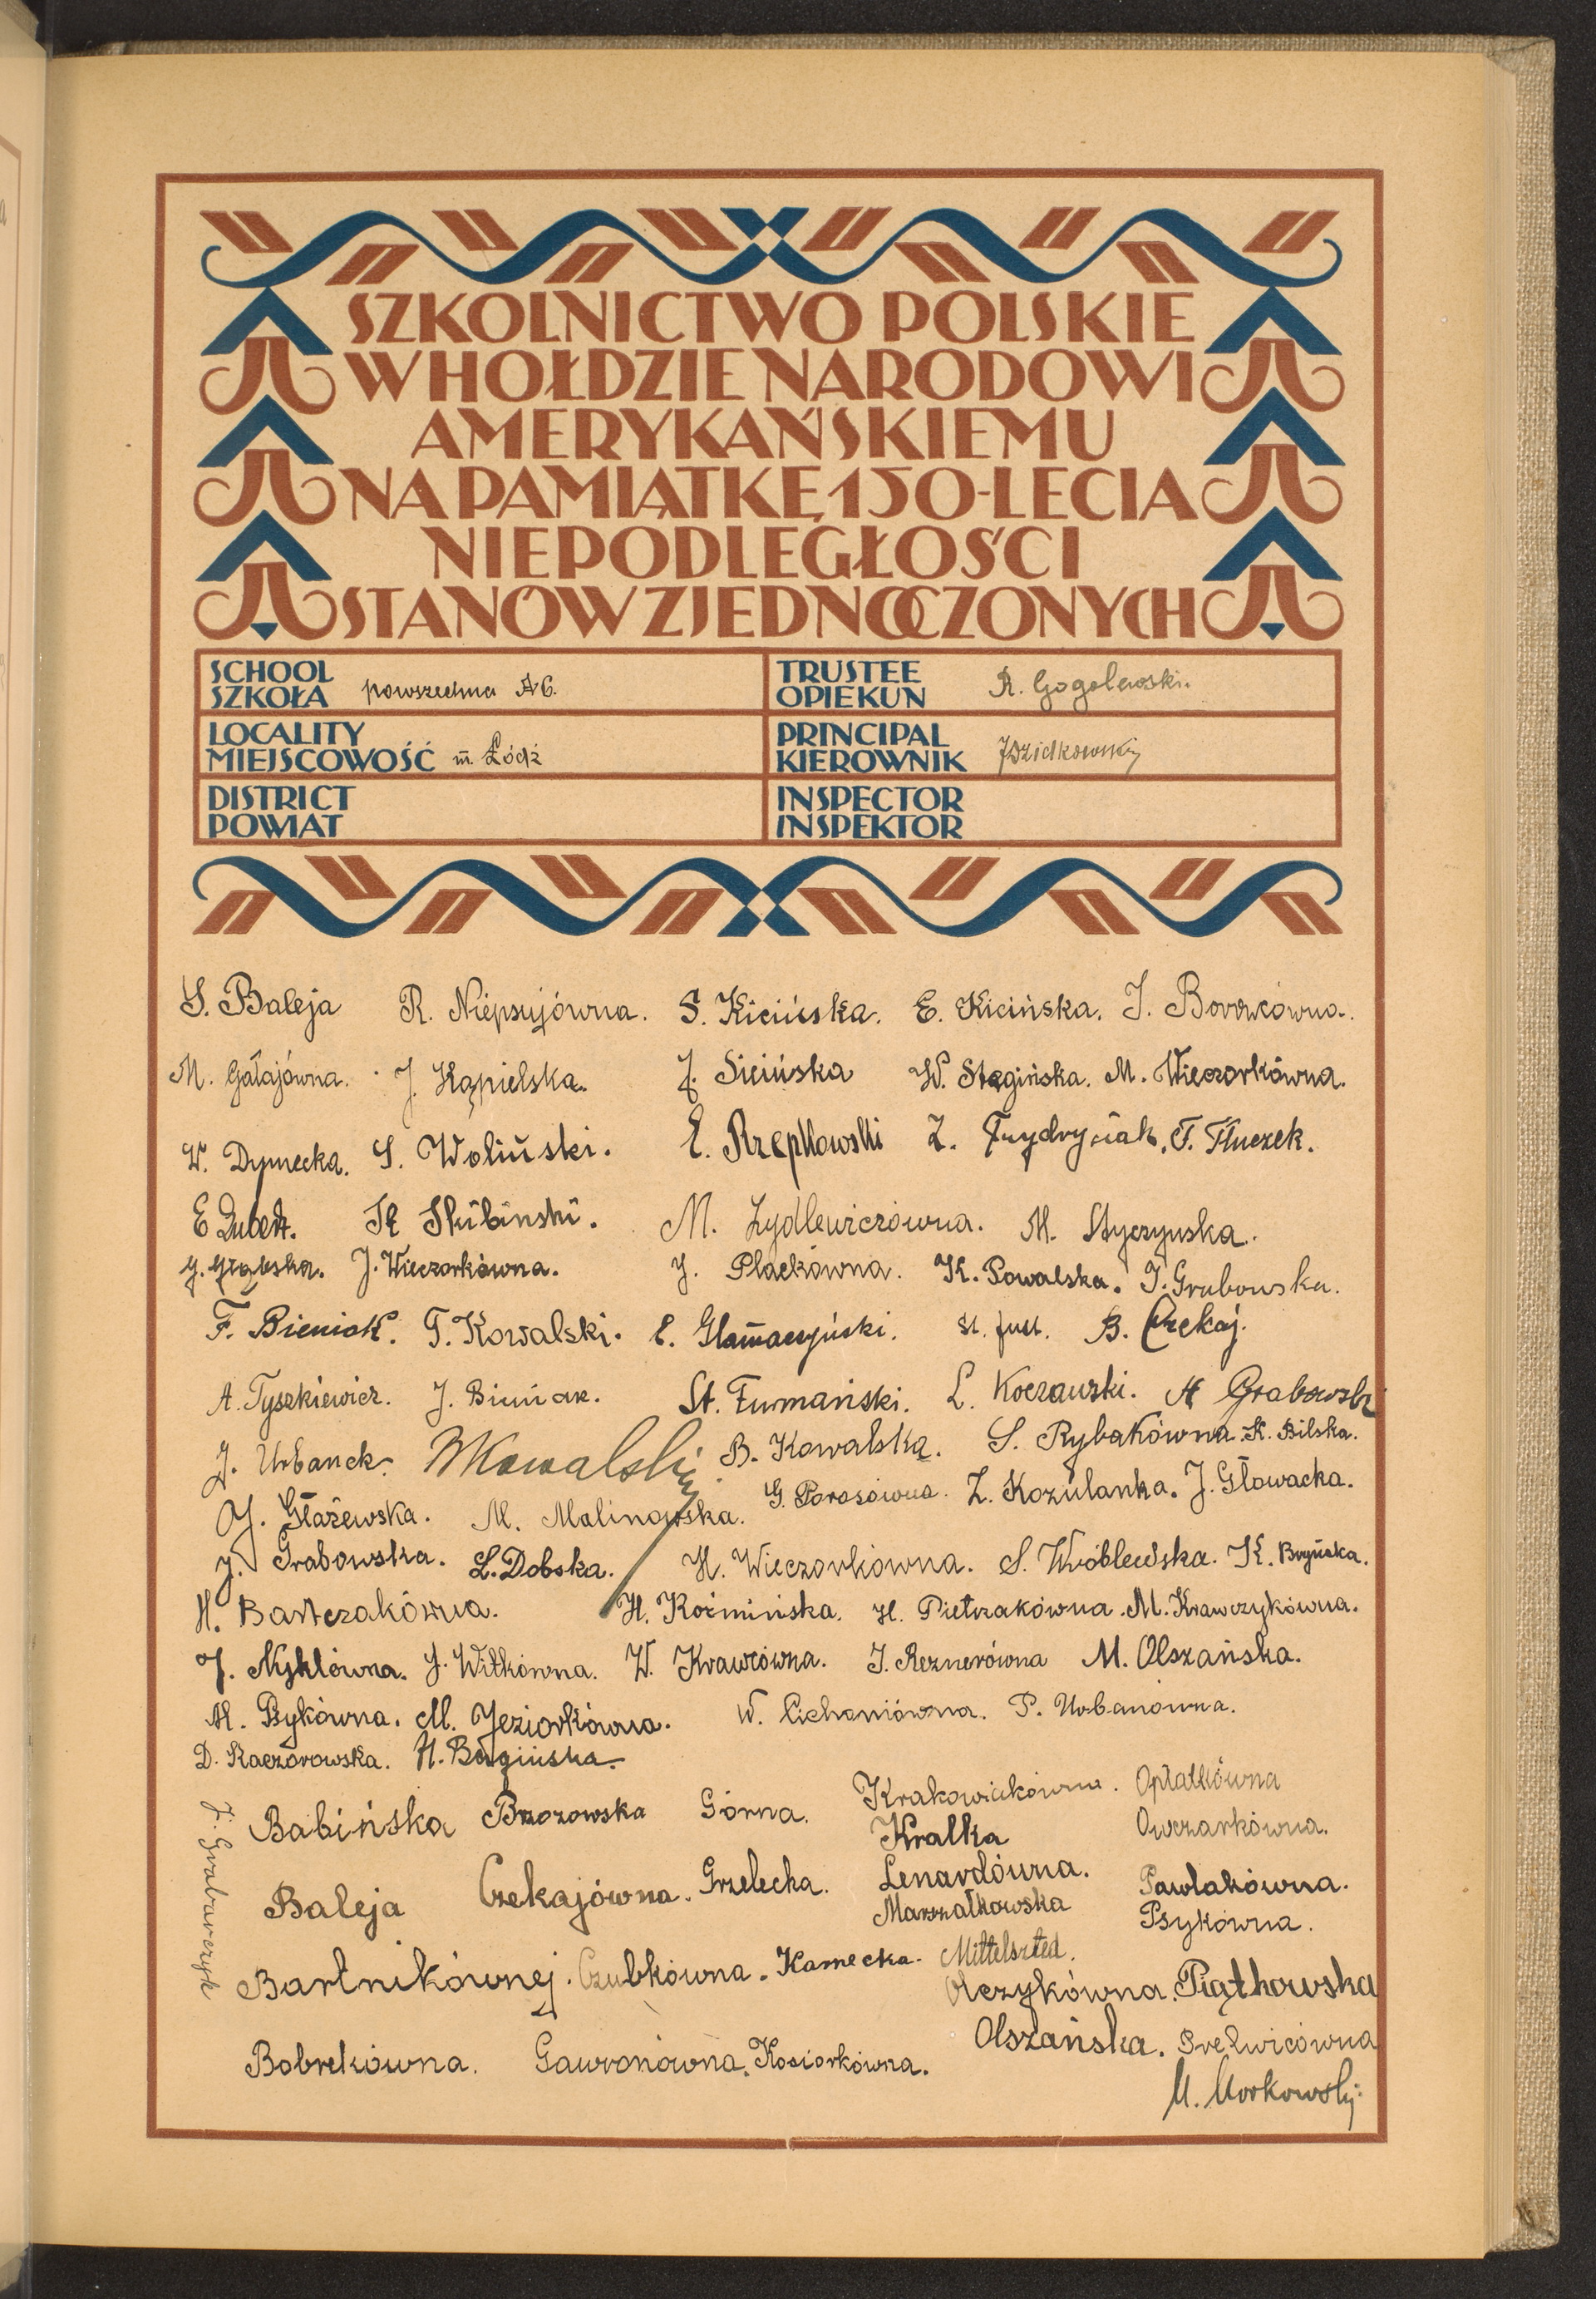 SZKOLNICTWO POLSKIE
W HOŁDZIE NARODOWI
AMERYKAŃSKIEMU
NA PAMIĄTKĘ 150-LECIA
NIEPODLEGŁOŚCI
STANÓW ZJEDNOCZONYCH
SCHOOL
SZKOŁA powszechna № 6.
TRUSTEE
OPIEKUN R. Gogolewski.
LOCALITY
MIEJSCOWOŚĆ m. Łódź
PRINCIPAL
KIEROWNIK
DISTRICT
POWIAT
INSPECTOR
INSPEKTOR
S. Baleja R. Niepsujówna. S. Kicińska. E. Kicińska. J. Borowcówna.
M. Gałajówna. J. Kąpielska. J. Sicińska W. Stęgińska. M. Wieczorkówna.
W. Dymecka. S. Woliński. E. Rzepkowski Z. Frydrysiak. F. Tłuczek.
E Lubert. St Skibiński. M. Żydlewiczówna. M. Styczyńska.
J. Wieczorkówna. J. Plackówna. K. Powalska. J. Grabowska.
F. Bieniak. T. Kowalski. E. Głamaczyński. B. Czekaj.
A. Tyszkiewicz. J. Bieniak. St. Furmański. L. Koczauski. A Grabowski
J. Urbanek. W Kowalski B. Kowalska. S. Rybakówna. K. Bilska.
J. Głażewska. M. Malinowska. G. Porosówna. Z. Kozulanka. J. Głowacka.
J. Grabowska. L. Dobska. H. Wieczorkówna. S. Wróblewska. K. Buyńska.
H. Bartczakówna. H. Koźmińska. H. Pietrzakówna. M. Krawczykówna.
J. Nyklówna. J. Witkówna. W. Krawcówna. J. Reznerówna M. Olszańska.
M. Psykówna. M. Jeziorkówna. W. Cichoniówna. P. Urbanówna.
D. Kaczorowska. H. Bagińska.
J. Grabarczyk
Babińska Brzozowska Górna. Krakowiakówna. Opłatkówna
Kralka Owczarkówna.
Baleja Czekajówna. Grzelecka. Lenardówna. Pawlakówna.
Marszałkowska Psykówna.
Bartnikównej. Czubkówna. Kamecka. Mittelszted.
Olczykówna. Piątkowska
Olszańska. Prelwicówna
Bobrekówna. Gawronówna. Kosiorkówna.
M. Morkowski